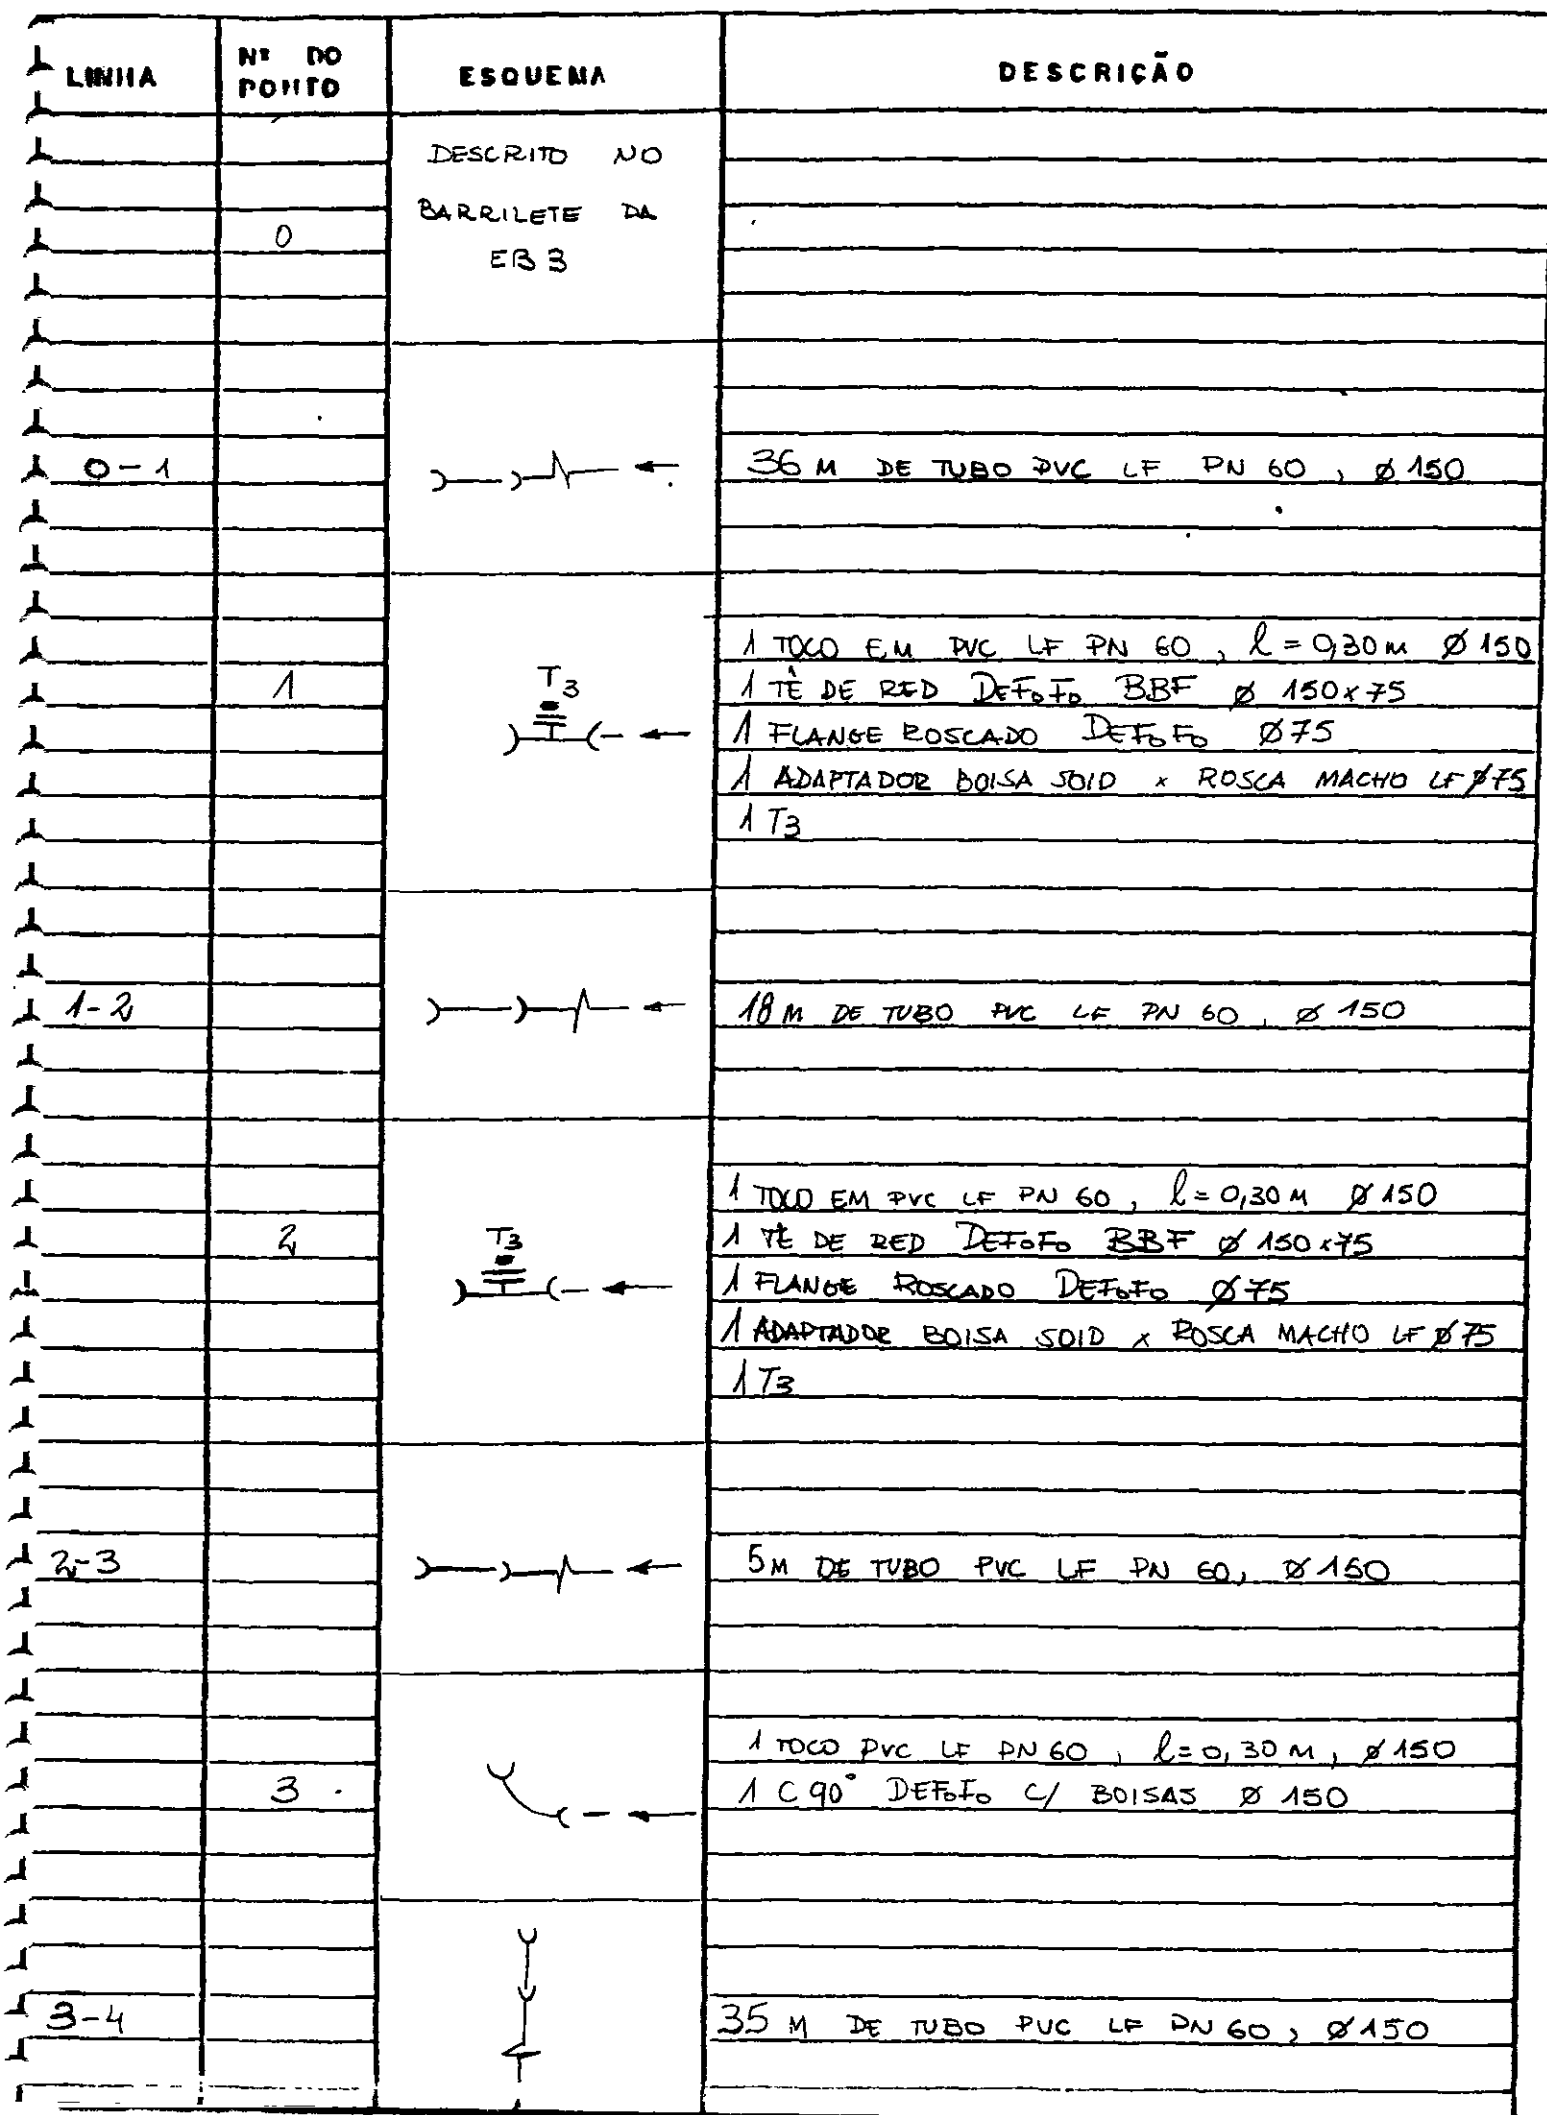 LINHA Nº DO PONTO ESQUEMA DESCRIÇÃO
0 DESCRITO NO
BARRILETE DA
EB 3
0-1 36 M DE TUBO PVC LF PN 60, Ø 150
1 T3
1 TOCO EM PVC LF PN 60, l = 0,30 m Ø 150
1 TÊ DE RED DEFoFo BBF Ø 150x75
1 FLANGE ROSCADO DEFoFo Ø75
1 ADAPTADOR BOLSA SOLD x ROSCA MACHO LF Ø75
1 T3
1-2 18 M DE TUBO PVC LF PN 60, Ø 150
2 T3
1 TOCO EM PVC LF PN 60, l = 0,30 M Ø 150
1 TÊ DE RED DEFoFo BBF Ø 150x75
1 FLANGE ROSCADO DEFoFo Ø75
1 ADAPTADOR BOLSA SOLD x ROSCA MACHO LF Ø75
1 T3
2-3 5M DE TUBO PVC LF PN 60, Ø 150
3
1 TOCO PVC LF PN 60, l=0,30 M, Ø 150
1 C 90° DEFoFo C/ BOLSAS Ø 150
3-4 35 M DE TUBO PVC LF PN 60, Ø 150